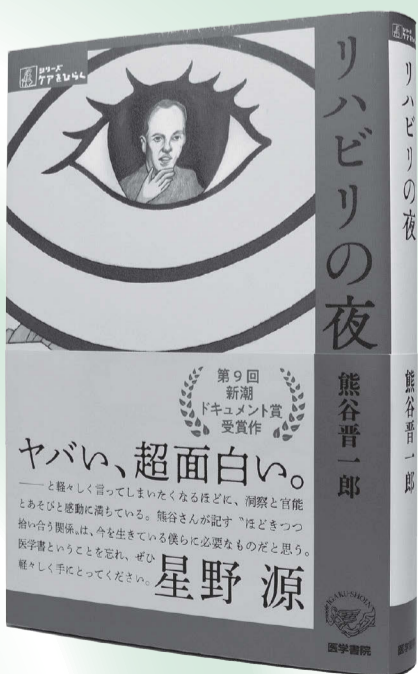 シリーズ
ケアをひらく
リハビリの夜
熊谷晋一郎
第9回
新潮
ドキュメント賞
受賞作
ヤバい、超面白い。
――と軽々しく言ってしまいたくなるほどに、洞察と官能
とあそびと感動に満ちている。熊谷さんが記す〝ほどきつつ
拾い合う関係〟は、今を生きている僕らに必要なものだと思う。
医学書ということを忘れ、ぜひ
軽々しく手にとってください。
星野 源
IGAKU-SHOIN
医学書院
リハビリの夜
熊谷晋一郎
医学書院